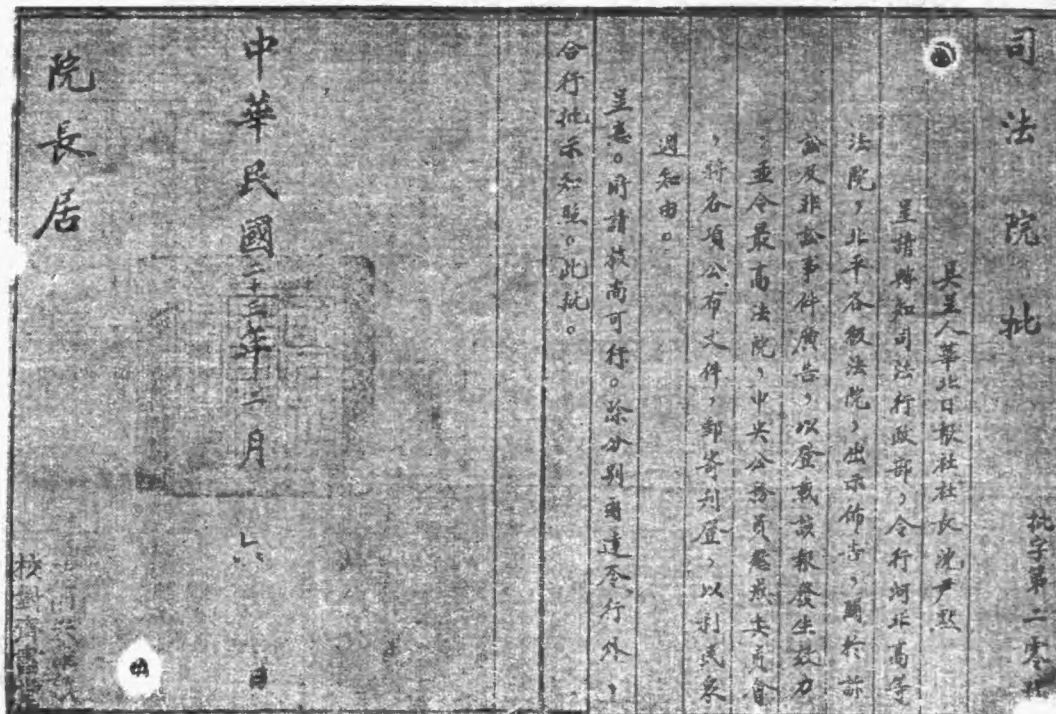 司法院批
批字第二零
具呈人華北日報社社長沈尹默
呈請轉知司法行政部，令行河北高等
法院，北平各級法院，出示佈告，關於訴
訟及非訟事件廣告，以登載該報發生效力
，並令最高法院，中央公務員懲戒委員會
，將各項公布文件，郵寄刊登，以利民衆
週知由。
呈悉。所請核尚可行。除分別函達令行外，
合行批示知照。此批。
中華民國二十三年二月六日
院長居
校對